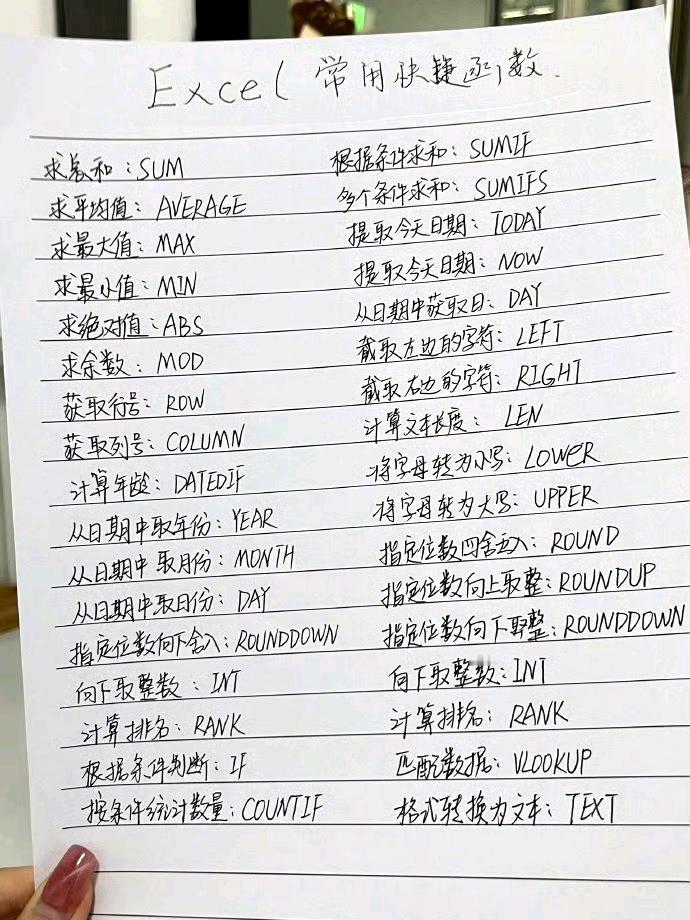 Excel 常用快捷函数.
求总和：SUM
求平均值：AVERAGE
求最大值：MAX
求最小值：MIN
求绝对值：ABS
求余数：MOD
获取行号：ROW
获取列号：COLUMN
计算年龄：DATEDIF
从日期中取年份：YEAR
从日期中取月份：MONTH
从日期中取日份：DAY
指定位数向下舍入：ROUNDDOWN
向下取整数：INT
计算排名：RANK
根据条件判断：IF
按条件统计数量：COUNTIF
根据条件求和：SUMIF
多个条件求和：SUMIFS
提取今天日期：TODAY
提取今天日期：NOW
从日期中获取日：DAY
截取左边的字符：LEFT
截取右边的字符：RIGHT
计算文本长度：LEN
将字母转为小写：LOWER
将字母转为大写：UPPER
指定位数四舍五入：ROUND
指定位数向上取整：ROUNDUP
指定位数向下取整：ROUNDDOWN
向下取整数：INT
计算排名：RANK
匹配数据：VLOOKUP
格式转换为文本：TEXT